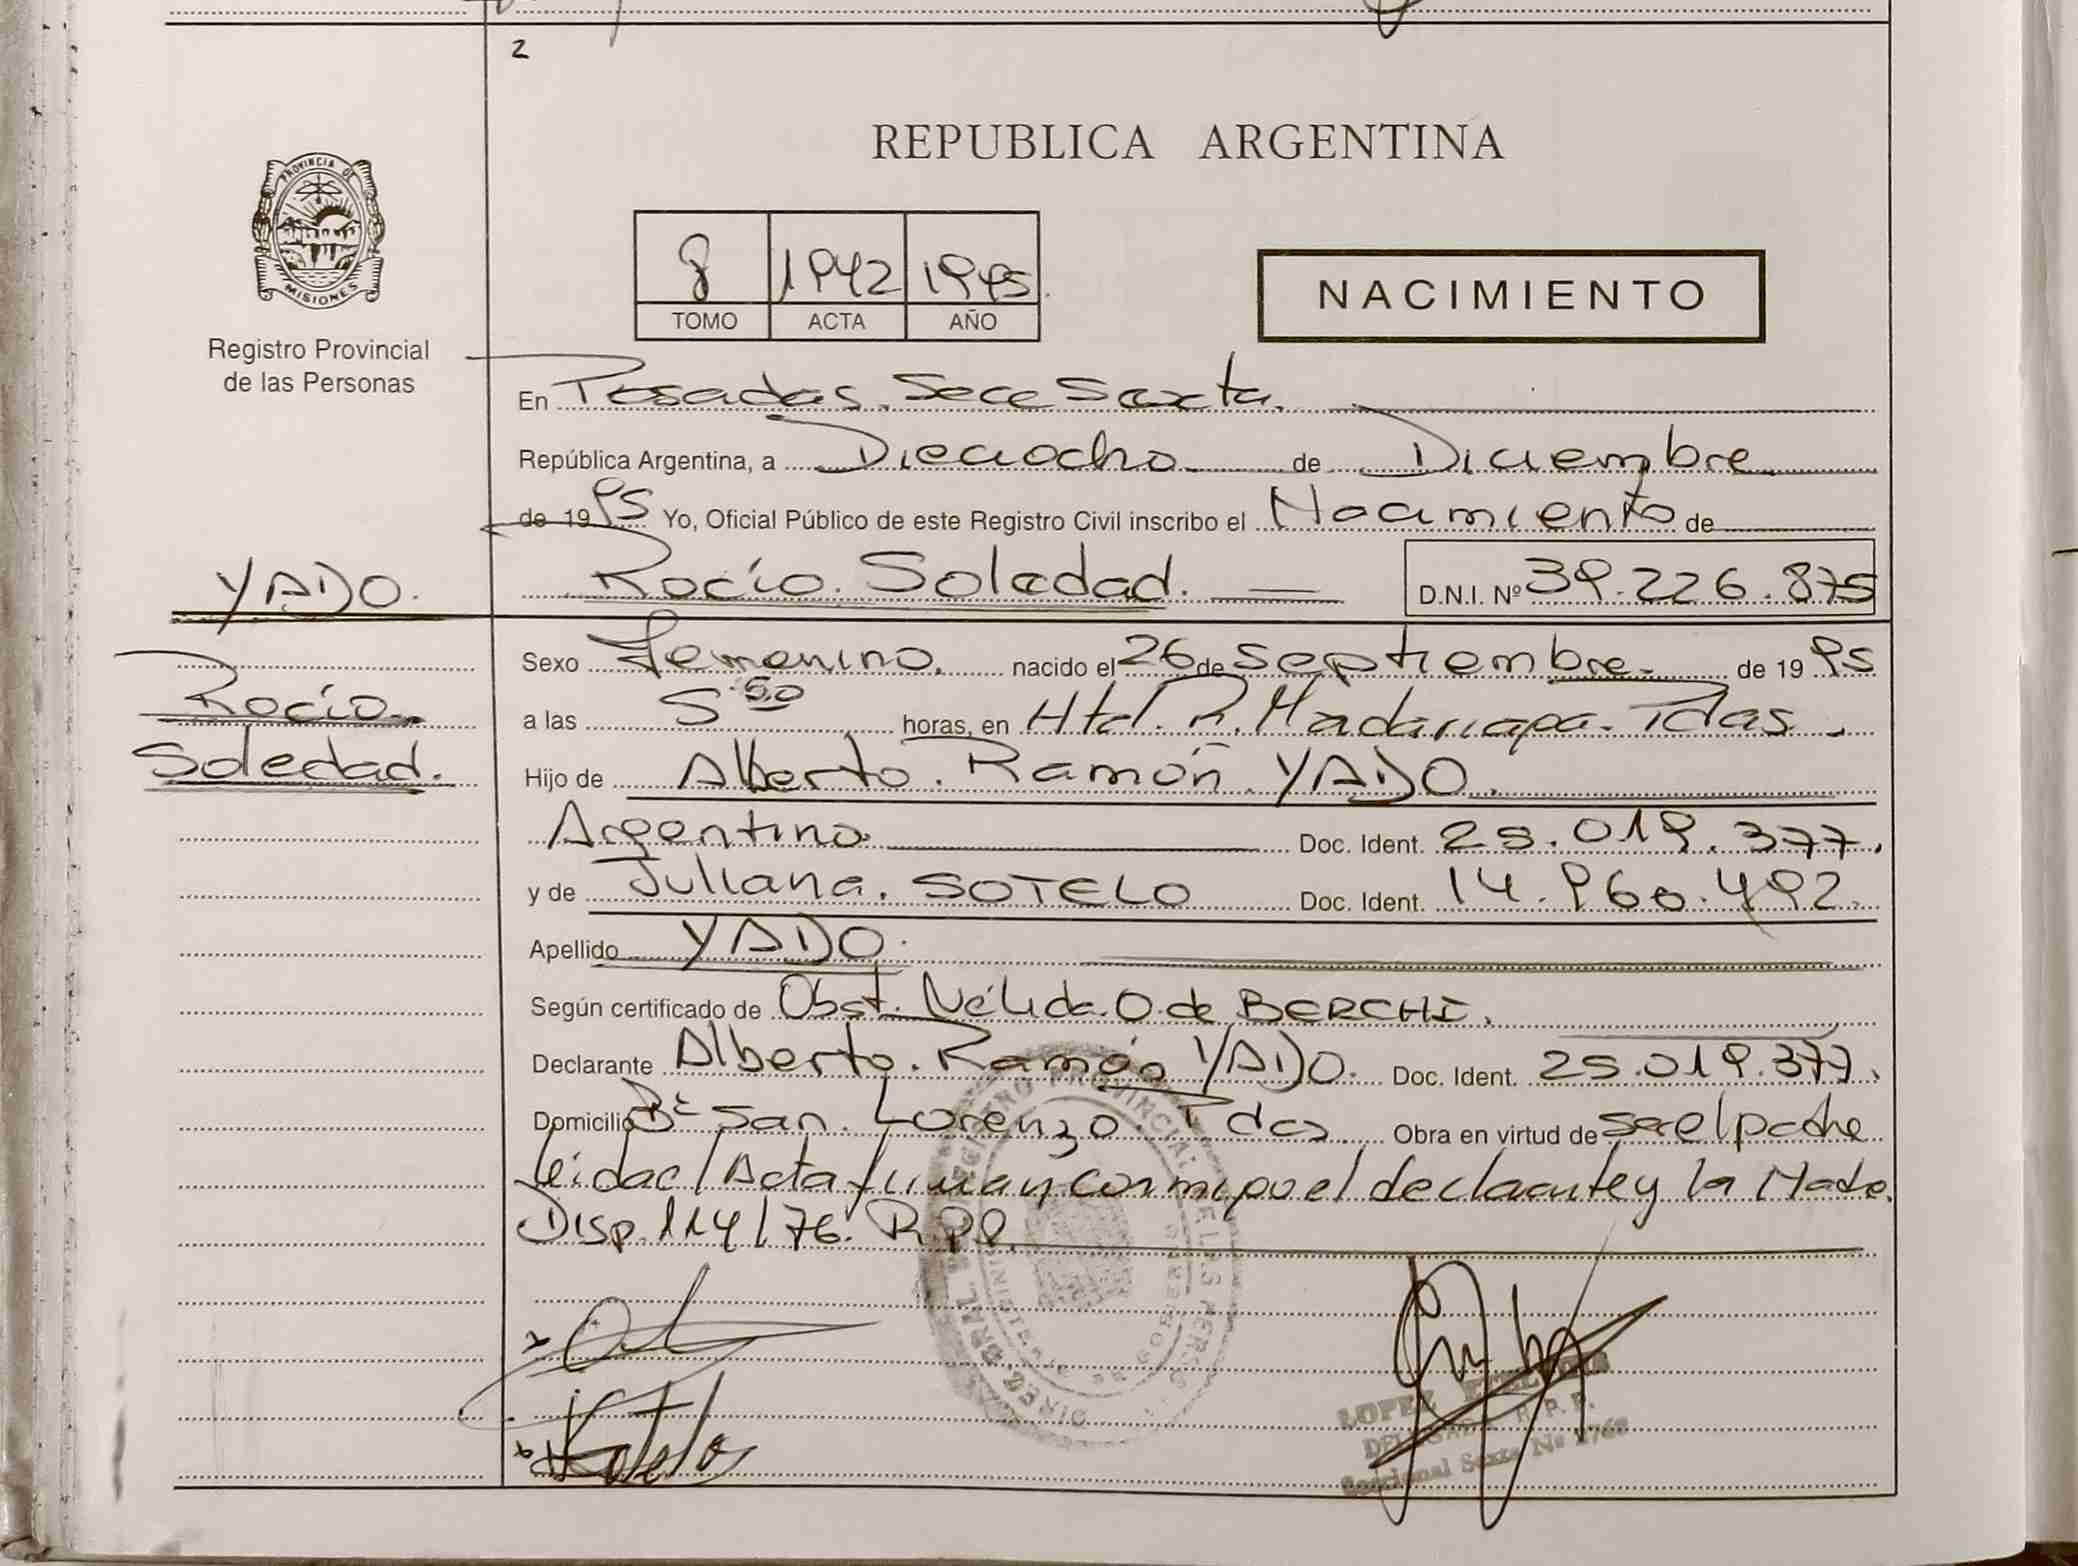 2
REPUBLICA ARGENTINA
PROVINCIA DE
MISIONES
Registro Provincial
de las Personas
8 1942 1995
TOMO ACTA AÑO
NACIMIENTO
En Posadas. Secc Sexta.
República Argentina, a Dieciocho de Diciembre
de 1995 Yo, Oficial Público de este Registro Civil inscribo el Nacimiento de
YADO.
Rocío. Soledad. D.N.I. Nº 39.226.875
Rocío
Soledad.
Sexo Femenino. nacido el 26 de Septiembre de 1995
a las 5 50 horas, en Htal. R. Madariaga. Pdas.
Hijo de Alberto. Ramón YADO.
Argentino Doc. Ident. 25.019.377.
y de Juliana. SOTELO Doc. Ident. 14.960.492.
Apellido YADO.
Según certificado de Obst. Nélida O. de BERCHI.
Declarante Alberto. Ramón YADO. Doc. Ident. 25.019.377.
Domicilio Bº San. Lorenzo Pdas Obra en virtud de ser el padre
leida el Acta firman conmigo el declarante y la Madre.
Disp. 114/76. R.P.P.
Sotelo
DIREC. GRAL. PROVINCIAL DE LAS PERS
MINISTERIO DE GOBIERNO
LOPEZ
DELEGADA R.P.P.
Seccional Sexta Nº